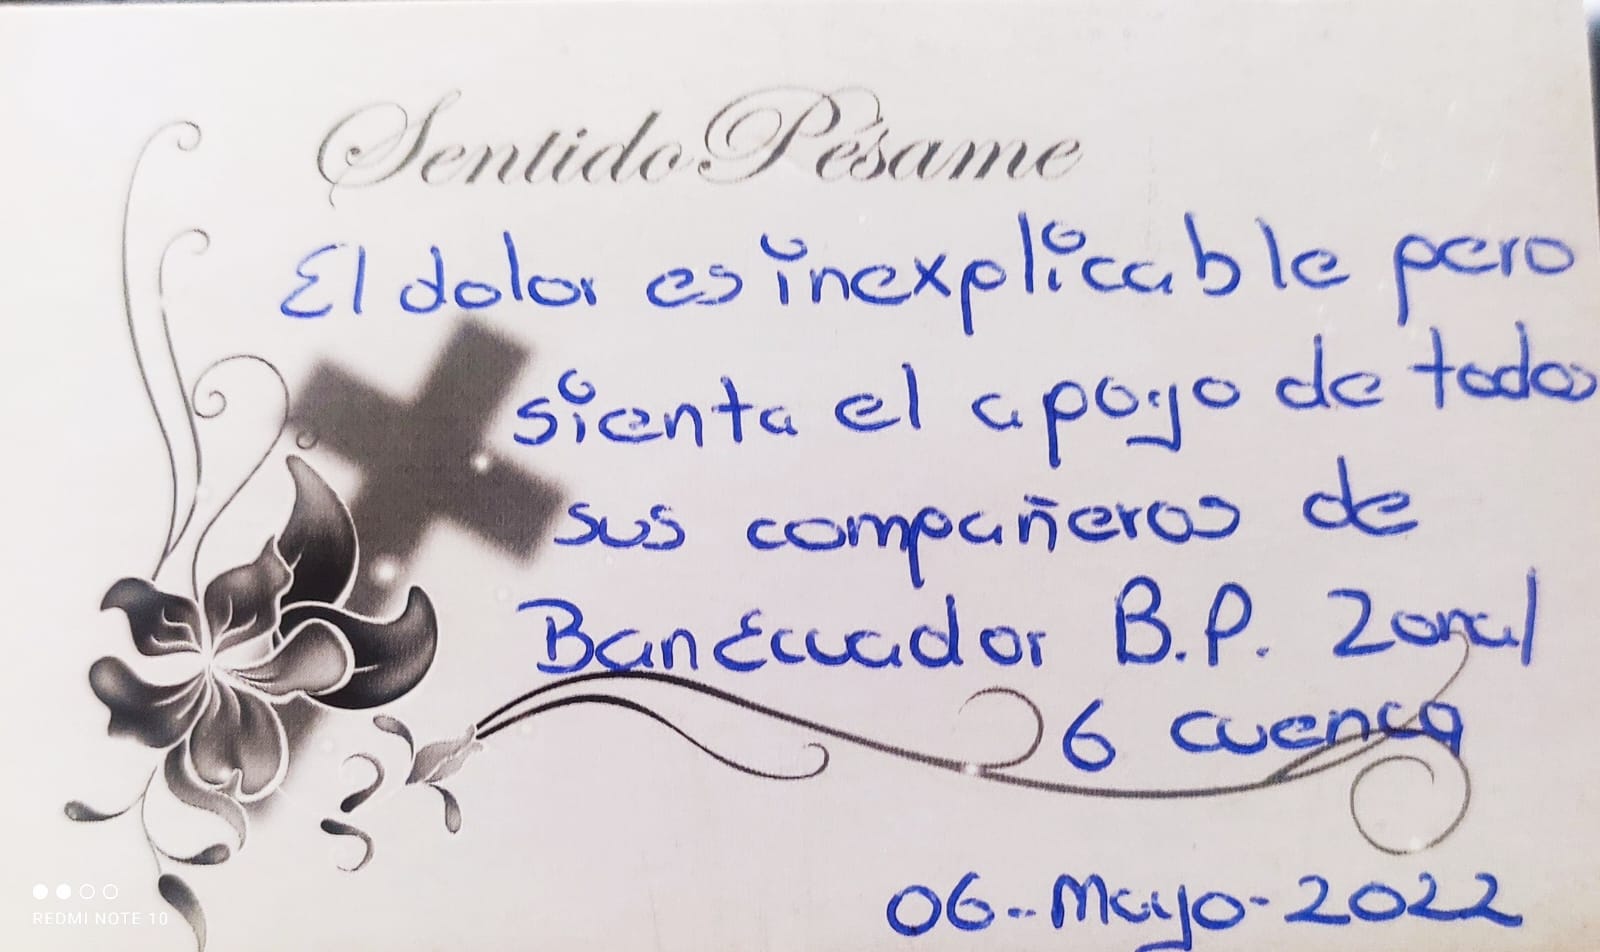 Sentido Pésame
El dolor es inexplicable pero
sienta el apoyo de todos
sus compañeros de
BanEcuador B.P. Zonal
6 cuenca
06-Mayo-2022
REDMI NOTE 10